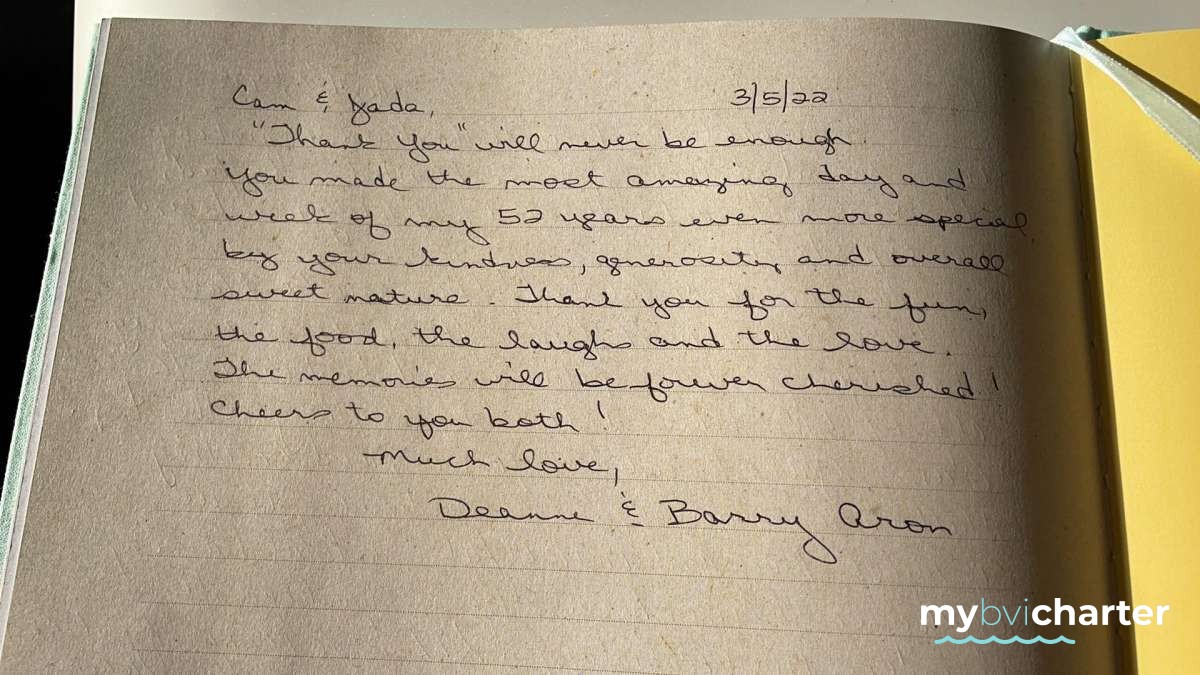 Cam & Jada,
3/5/22
"Thank you" will never be enough.
You made the most amazing day and
week of my 52 years even more special
by your kindness, generosity and overall
sweet nature. Thank you for the fun,
the food, the laughs and the love.
The memories will be forever cherished!
Cheers to you both!
Much love,
Deanne & Barry Aron
mybvicharter